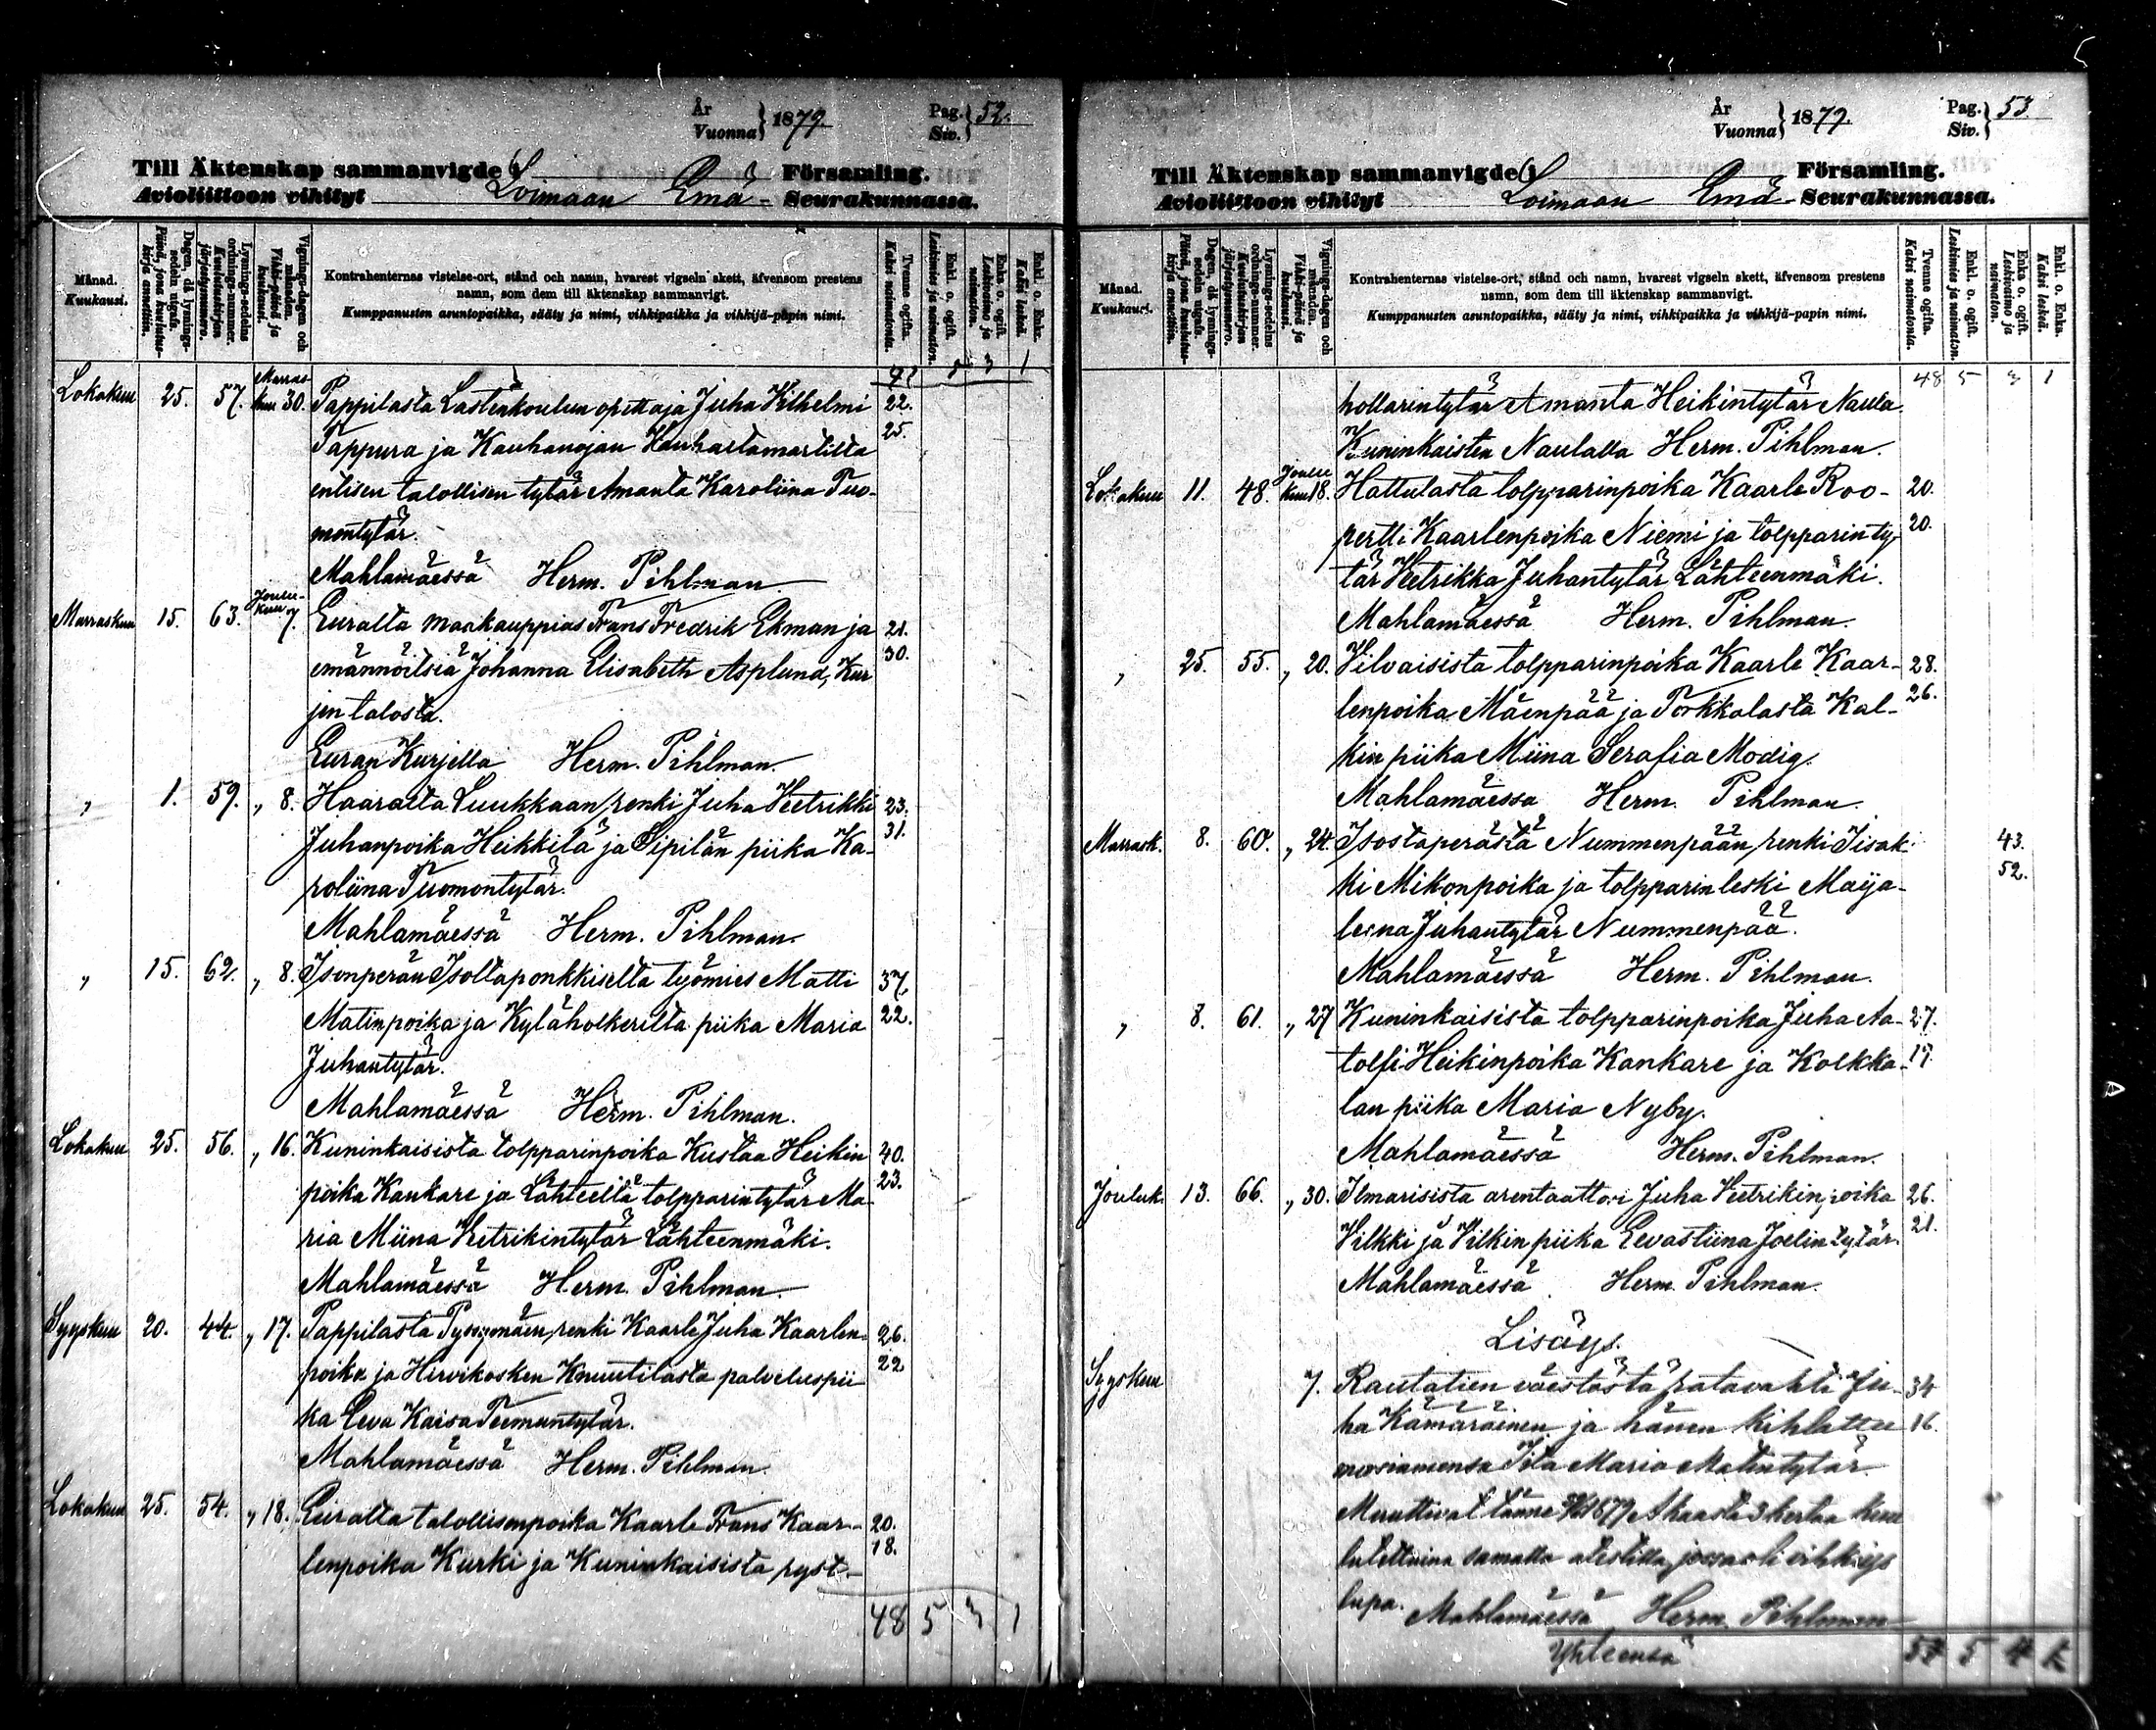 År
Vuonna } 1879.
Pag.
Siv. } 52.
Till Äktenskap sammanvigde i Församling.
Avioliittoon vihityt Loimaan Emä- Seurakunnassa.
Månad.
Kuukausi.
Dagen, då lysnings-
sedeln utgafs.
Päivä, jona kuulutus-
kirja annettiin.
Lysnings-sedelns
ordnings-nummer.
Kuulutuskirjan
järjestysnumero.
Vignings-dagen och
månaden.
Vihki-päivä ja
kuukausi.
Kontrahenternas vistelse-ort, stånd och namn, hvarest vigseln skett, äfvensom prestens
namn, som dem till äktenskap sammanvigt.
Kumppanusten asuntopaikka, sääty ja nimi, vihkipaikka ja vihkijä-papin nimi.
Tvenne ogifta.
Kaksi naimatonta.
Enkl. o. ogift.
Leskimies ja naimaton.
Enka o. ogift.
Leskivaimo ja
naimaton.
Enkl. o. Enka.
Kaksi leskeä.
5 3 1
Lokakuu 25. 57. Marras-
kuu 30. Pappilasta Lastenkoulun opettaja Juha Vilhelmi 22.
Tappura ja Kauhanojan Kauhaltamartilta 25.
entisen talollisen tytär Amanta Karoliina Tuo-
montytär.
Mahlamäessä Herm. Pihlman
Marraskuu 15. 63. Joulu-
kuu 7. Euralta maakauppias Frans Fredrik Ekman ja 21.
emännöitsiä Johanna Elisabeth Asplund, Kur 30.
jen talosta.
Euran Kurjella Herm. Pihlman.
„ 1. 59. „ 8. Haaralta Luukkaan renki Juha Vetrikki 23.
Juhanpoika Heikkilä ja Sipilän piika Ka- 31.
roliina Tuomontytär.
Mahlamäessä Herm. Pihlman.
„ 15. 62. „ 8. Isonperän Isoltaponkkiselta työmies Matti 37.
Matinpoika ja Kyläholkerilta piika Maria 22.
Juhantytär.
Mahlamäessä Herm. Pihlman.
Lokakuu 25. 56. „ 16. Kuninkaisista tolpparinpoika Kustaa Heikin 40.
poika Kankare ja Lähteeltä tolpparintytär Ma- 23.
ria Miina Vetrikintytär Lähteenmäki.
Mahlamäessä Herm. Pihlman.
Syyskuu 20. 44. „ 17. Pappilasta renki Kaarle Juha Kaarlen- 26.
poika ja Hirvikosken Knuutilasta palveluspii 22
ka Eeva Kaisa Teemuntytär.
Mahlamäessä Herm. Pihlman.
Lokakuu 25. 54. „ 18. Euralta talollisenpoika Kaarle Frans Kaar- 20.
lenpoika Kurki ja Kuninkaisista pyst- 18.
48 5 3 1
År
Vuonna } 1879.
Pag.
Siv. } 53
Till Äktenskap sammanvigde i Församling.
Avioliittoon vihityt Loimaan Emä- Seurakunnassa.
Månad.
Kuukausi.
Dagen, då lysnings-
sedeln utgafs.
Päivä, jona kuulutus-
kirja annettiin.
Lysnings-sedelns
ordnings-nummer.
Kuulutuskirjan
järjestysnumero.
Vignings-dagen och
månaden.
Vihki-päivä ja
kuukausi.
Kontrahenternas vistelse-ort, stånd och namn, hvarest vigseln skett, äfvensom prestens
namn, som dem till äktenskap sammanvigt.
Kumppanusten asuntopaikka, sääty ja nimi, vihkipaikka ja vihkijä-papin nimi.
Tvenne ogifta.
Kaksi naimatonta.
Enkl. o. ogift.
Leskimies ja naimaton.
Enka o. ogift.
Leskivaimo ja
naimaton.
Enkl. o. Enka.
Kaksi leskeä.
48 5 3 1
hollarintytär Amanta Heikintytär Naula.
Kuninkaisten Naulalla Herm. Pihlman.
Lokakuu 11. 48. Joulu
kuu 18. Hattulasta tolpparinpoika Kaarle Roo- 20.
pertti Kaarlenpoika Niemi ja tolpparinty 20.
tär Vetrikka Juhantytär Lähteenmäki.
Mahlamäessä Herm. Pihlman.
„ 25. 55. „ 20. Vilvaisista tolpparinpoika Kaarle Kaar- 28.
lenpoika Mäenpää ja Torkkalasta Kal- 26.
kin piika Miina Serafia Modig.
Mahlamäessä Herm. Pihlman.
Marrask. 8. 60. „ 24. Isostaperästä Nummenpään renki Iisak 43.
ki Mikonpoika ja tolpparin leski Maija- 52.
leena Juhantytär Nummenpää.
Mahlamäessä Herm. Pihlman.
„ 8. 61. „ 27 Kuninkaisista tolpparinpoika Juha Aa- 27.
tolfi Heikinpoika Kankare ja Kolkka- 19.
lan piika Maria Nyby.
Mahlamäessä Herm. Pihlman.
Jouluk. 13. 66. „ 30. Ilmarisista arentaattori Juha Vetrikinpoika 26.
Vilkki ja Vilkin piika Eevastiina Joelintytär. 21.
Mahlamäessä Herm. Pihlman.
Lisäys.
Syyskuu 7. Rautatien väestöstä ratavahti Ju- 34
ha Kämäräinen ja hänen kihlattu 16.
morsiamensa Iita Maria Matintytär.
Muuttivat tänne 1879 Akaasta 3 kertaa kuu
lutettuina samalla atestilla, jossa oli vihkiys
lupa. Mahlamäessä Herm. Pihlman
Yhteensä 54 5 4 1